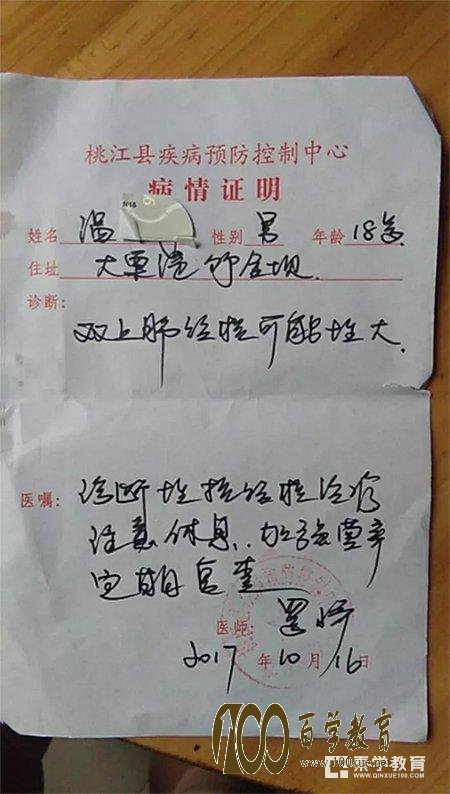 桃江县疾病预防控制中心
病情证明
姓名 温 性别 男 年龄 18岁
住址 大栗港
诊断:
双上肺结核可能性大.
医嘱:
诊断性抗结核治疗
注意休息. 加强营养
定期复查
医师:
2017 年 10 月 16 日
100 百学教育
www.100xue.net
亲学教育
WWW.QINXUE100.COM